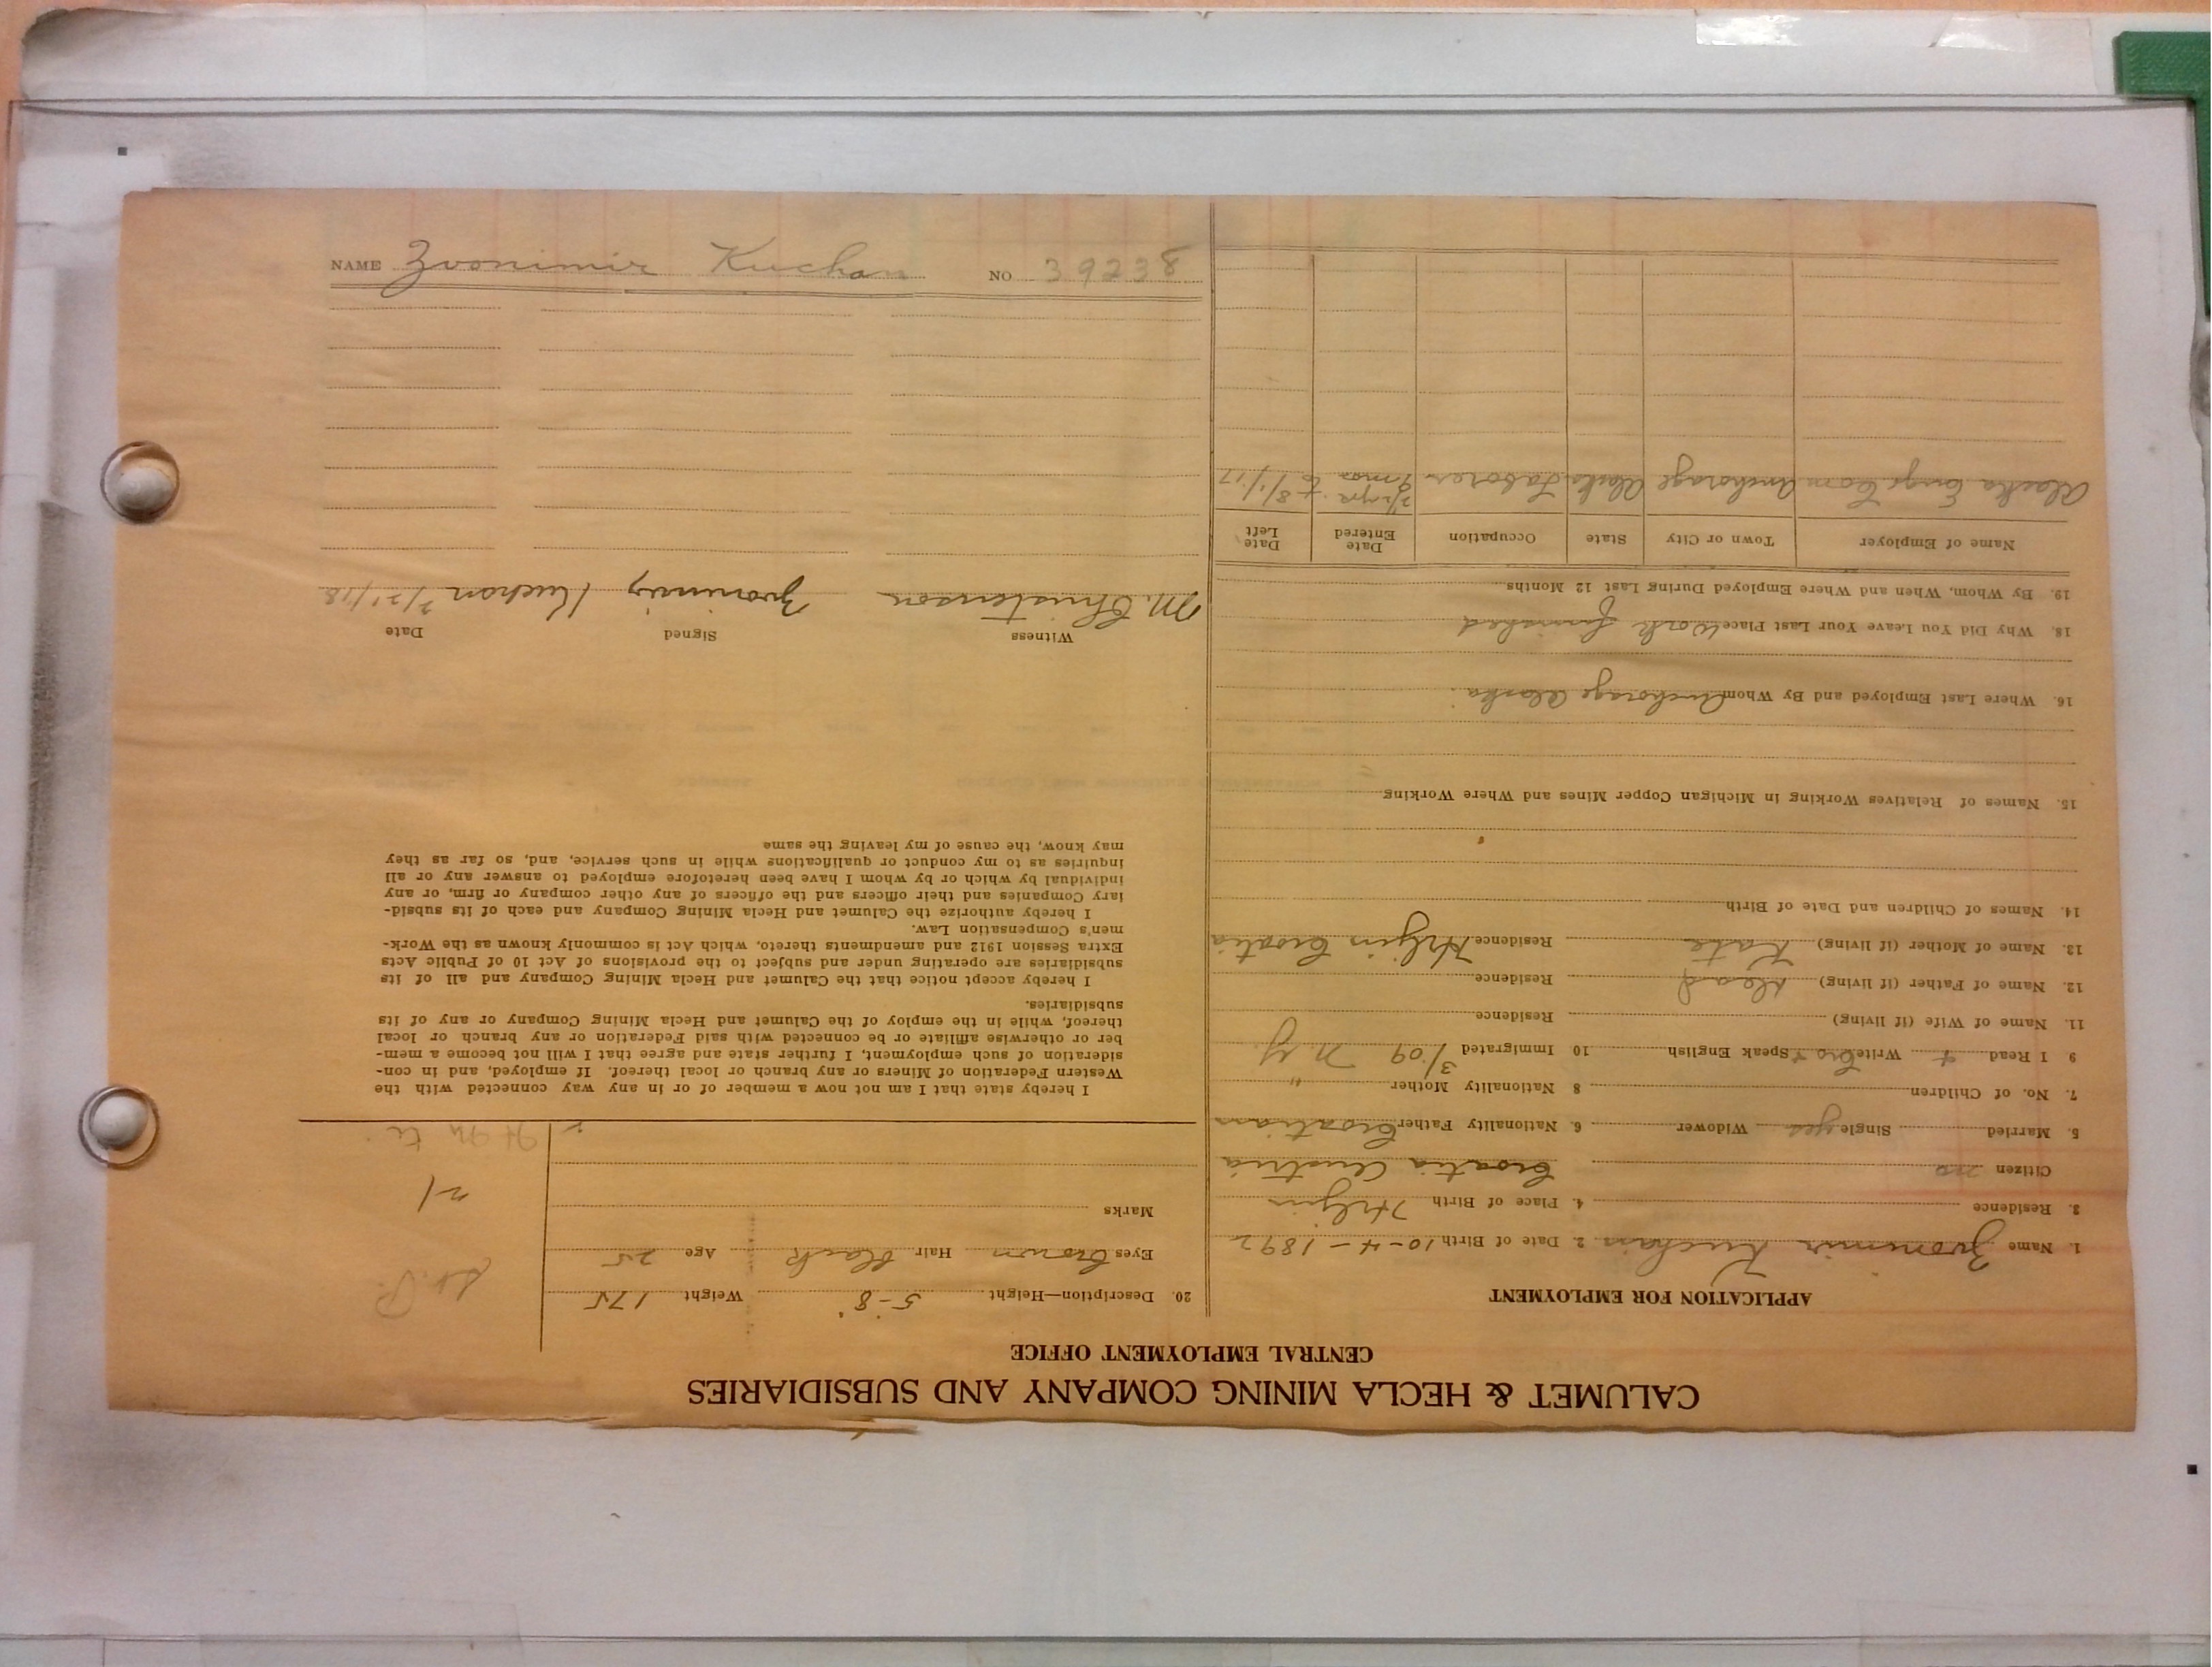 CALUMET & HECLA MINING COMPANY AND SUBSIDIARIES
CENTRAL EMPLOYMENT OFFICE
APPLICATION FOR EMPLOYMENT
1. Name Zvonimir Kuchan 2. Date of Birth 10-4-1892
3. Residence 4. Place of Birth Hrljin
Citizen no Croatia Austria
5. Married Single yes Widower 6. Nationality Father Croatian
7. No. of Children 8 Nationality Mother "
9 I Read + Write Cro + Speak English 10 Immigrated 3/09 N.Y.
11. Name of Wife (if living) Residence
12. Name of Father (if living) dead Residence
13. Name of Mother (if living) Kate Residence Hrljin Croatia
14. Names of Children and Date of Birth
15. Names of Relatives Working in Michigan Copper Mines and Where Working
16. Where Last Employed and By Whom Anchorage Alaska
18. Why Did You Leave Your Last Place Work finished
19. By Whom, When and Where Employed During Last 12 Months
Name of Employer Town or City State Occupation Date Entered Date Left
Alaska Enge Com Anchorage Alaska Laborer 8/1/17
20. Description—Height 5-8" Weight 175
Eyes brown Hair black Age 25
Marks
21
I hereby state that I am not now a member of or in any way connected with the
Western Federation of Miners or any branch or local thereof. If employed, and in con-
sideration of such employment, I further state and agree that I will not become a mem-
ber or otherwise affiliate or be connected with said Federation or any branch or local
thereof, while in the employ of the Calumet and Hecla Mining Company or any of its
subsidiaries.
I hereby accept notice that the Calumet and Hecla Mining Company and all of its
subsidiaries are operating under and subject to the provisions of Act 10 of Public Acts
Extra Session 1912 and amendments thereto, which Act is commonly known as the Work-
men's Compensation Law.
I hereby authorize the Calumet and Hecla Mining Company and each of its subsid-
iary Companies and their officers and the officers of any other company or firm, or any
individual by which or by whom I have been heretofore employed to answer any or all
inquiries as to my conduct or qualifications while in such service, and, so far as they
may know, the cause of my leaving the same
Witness Signed Date
M. Christenson Zvonimir Kuchan 2/21/18
NAME Zvonimir Kuchan NO 39238